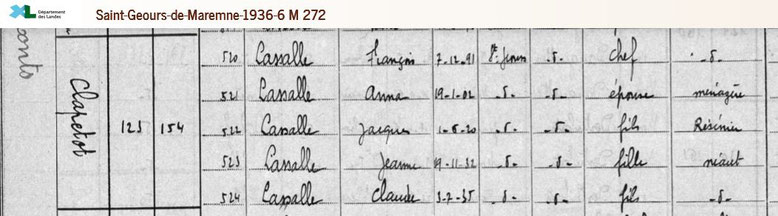 Département
des Landes
Saint-Geours-de-Maremne-1936-6 M 272
Clapetot
123 154
520 Lassalle François 7-12-91 St Geours -d- chef -d-
521 Lassalle Anna 19-1-02 -d- -d- épouse ménagère
522 Lassalle Jacques 1-6-20 -d- -d- fils Résinier
523 Lassalle Jeanne 19-11-32 -d- -d- fille néant
524 Lassalle Claude 3-7-35 -d- -d- fils -d-